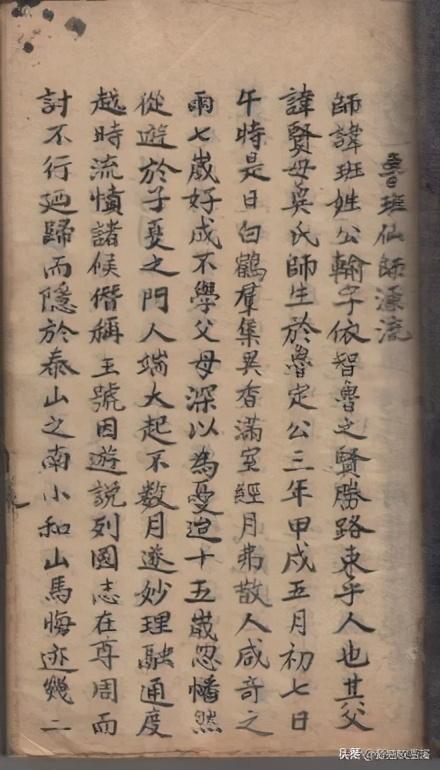 魯班仙師源流
師諱班姓公輸字依智魯之賢勝路東乎人也其父
諱賢母吳氏師生於魯定公三年甲戌五月初七日
午時是日白鶴羣集異香滿室經月弗散人咸奇之
雨七歲好成不學父母深以為憂迨十五歲忽幡然
從遊於子夏之門人端大起不数月遂妙理融通度
越時流憤諸候僭稱王號因遊說列國志在尊周而
討不行廼歸而隱於泰山之南小和山馬晦迹幾二
头条